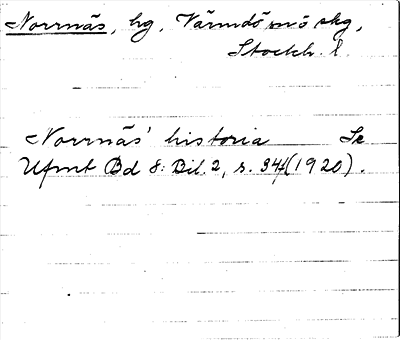 Norrnäs, hg, Värmdö skg,
Stockh. l.
Norrnäs' historia Se
Ufmt Bd 8: Bil. 2, s. 34 (1920).